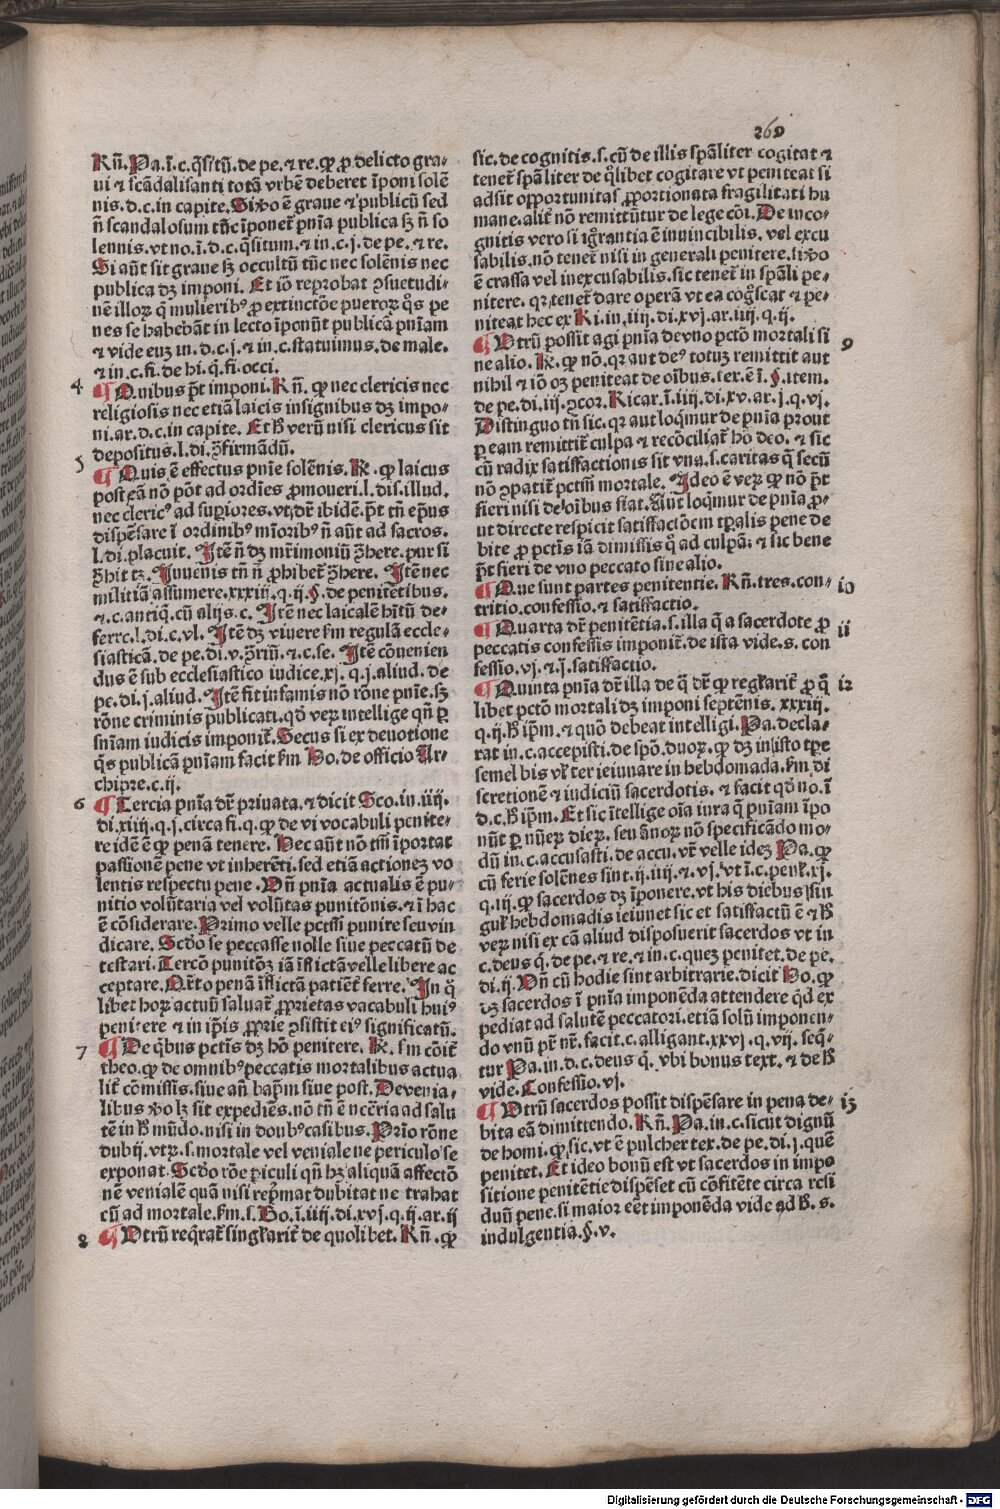 260
Rñ. Pa. ī. c. q̄sitū. de pe. ⁊ re. ꝙ ꝓ delicto gra-
ui ⁊ scādalisanti totā vrbē deberet īponi solē
nis. d. c. in capite. Si ꝟo ē graue ⁊ publicū sed
ñ scandalosum tūc īponet᷑ pnīa publica sꝫ ñ so
lennis. vt no. ī. d. c. q̄situm. ⁊ in. c. j. de pe. ⁊ re.
Si aūt sit graue sꝫ occultū tūc nec solēnis nec
publica dꝫ imponi. Et iō reprobat ꝯsuetudi-
nē illoꝝ q̄ mulierib⁹ ꝓ extinctōe pueroꝝ q̄s pe
nes se habebāt in lecto īponūt publicā pnīam
⁊ vide euꝫ in. d. c. j. ⁊ in. c. statuimus. de male.
⁊ in. c. fi. de hi. q̄. fi. occi.
4 ¶ Quibus p̄t imponi. Rñ. ꝙ nec clericis nec
religiosis nec etiā laicis insignibus dꝫ impo-
ni. ar. d. c. in capite. Et hͦ verū nisi clericus sit
depositus. l. di. ꝯfirmādū.
5 ¶ Quis ē effectus pnīe solēnis. R̄. ꝙ laicus
post eā nō pōt ad ordīes ꝓmoueri. l. dis. illud.
nec cleric⁹ ad suꝑiores. vt dr̄ ibidē. p̄t tñ ep̄us
dispēsare ī ordinib⁹ mīorib⁹ ñ aūt ad sacros.
l. di. placuit. Itē ñ dꝫ mr̄imoniū ꝯhere. pur si
ꝯhit tꝫ. Iuuenis tñ ñ ꝓhibet᷑ ꝯhere. Itē nec
militiā assumere. xxxiij. q. ij. §. de penitētibus.
⁊. c. antiq̄. cū alijs. c. Itē nec laicalē hītū de-
ferre. l. di. c. vl. Itē dꝫ viuere ẜm regulā eccle-
siasticā. de pe. di. v. ꝯriū. ⁊. c. se. Itē cōuenien
dus ē sub ecclesiastico iudice. xj. q. j. aliud. de
pe. di. j. aliud. Itē fit infamis nō rōne pnīe. sꝫ
rōne criminis publicati. qd̓ veꝝ intellige qñ ꝑ
snīam iudicis imponit᷑. Secus si ex deuotione
q̄s publicā pnīam facit ẜm Ho. de officio Ar-
chipre. c. ij.
6 ¶ Tercia pnīa dr̄ priuata. ⁊ dicit Sco. in. iiij.
di. xiiij. q. j. circa fi. q. ꝙ de vi vocabuli penite-
re idē ē ꝙ penā tenere. Hec aūt nō tm̄ īportat
passionē pene vt inherēti. sed etiā actionez vo
lentis respectu pene. Vñ pnīa actualis ē pu-
nitio volūtaria vel volūtas punitōnis. ⁊ ī hac
ē cōsiderare. Primo velle pctm̄ punire seu vin
dicare. Scd̓o se peccasse nolle siue peccatū de
testari. Tercō punitōꝫ iā īflictā velle libere ac
ceptare. Qr̄to penā īflictā patiēt᷑ ferre. In q̄
libet hoꝝ actuū saluat᷑ ꝓprietas vacabuli hui⁹
penitere ⁊ in ip̄is ꝓprie ꝯsistit ei⁹ significatū.
7 ¶ De q̄bus pctīs dꝫ hō penitere. R̄. ẜm cōit᷑
theo. ꝙ de omnib⁹ peccatis mortalibus actua
lit᷑ cōmissis. siue añ bap̄m siue post. De venia-
libus ꝟo lꝫ sit expediēs. nō tñ ē nccēria ad salu
tē in hͦ mūdo. nisi in doub⁹ casibus. Prīo rōne
dubij. vtꝝ. s. mortale vel veniale ne periculo se
exponat. Scd̓o rōe ꝑiculi qñ hꝫ aliquā affectō
nē venialē quā nisi rep̄mat dubitat ne trahat
cū ad mortale. ẜm. s. Bo. ī. iiij. di. xvj. q. ij. ar. ij
8 ¶ Vtrū req̄rat᷑ singl̓arit᷑ de quolibet. Rñ. ꝙ
sic. de cognitis. s. cū de illis sp̄aliter cogitat ⁊
tenet᷑ sp̄aliter de q̄libet cogitare vt peniteat si
adsit opportunitas ꝓportionata fragilitati hu
mane. alit᷑ nō remittūtur de lege cōi. De inco-
gnitis vero si igr̄antia ē inuincibilis. vel excu
sabilis. nō tenet᷑ nisi in generali penitere. si ꝟo
ē crassa vel inexcusabilis. sic tenet᷑ in sp̄ali pe-
nitere. qꝛ tenet᷑ dare operā vt ea coḡscat ⁊ pe-
niteat hec ex Ri. in. iiij. di. xvj. ar. iij. q. ij.
¶ Vtrū possit agi pnīa de vno pctō mortali si 9
ne alio. R̄. ꝙ nō. qꝛ aut de⁹ totuꝫ remittit aut
nihil ⁊ iō oꝫ peniteat de oībus. tex. ē ī. §. item.
de pe. di. iij. ꝯcor. Ricar. ī. iiij. di. xv. ar. j. q. vj.
Distinguo tñ sic. qꝛ aut loq̄mur de pnīa prout
ꝑ eam remittit᷑ culpa ⁊ recōciliat᷑ hō deo. ⁊ sic
cū radix satisfactionis sit vna. s. caritas q̄ secū
nō ꝯpatit᷑ pctm̄ mortale. Ideo ē veꝝ ꝙ nō p̄t
fieri nisi de oībus fiat. Aut loq̄mur de pnīa ꝓ-
ut directe respicit satisfactōem tꝑalis pene de
bite ꝓ pctīs iā dimissis q̄ ad culpā: ⁊ sic bene
p̄t fieri de vno peccato sine alio.
¶ Que sunt partes penitentie. Rñ. tres. con- 10
tritio. confessio. ⁊ satisfactio.
¶ Quarta dr̄ penitētia. s. illa q̄ a sacerdote ꝓ 11
peccatis confessis imponit᷑. de ista vide. s. con
fessio. vj. ⁊. j. satisfactio.
¶ Quinta pnīa dr̄ illa de q̄ dr̄ ꝙ regl̓arit᷑ ꝓ q̄ 12
libet pctō mortali dꝫ imponi septēnis. xxxiij.
q. ij. hͦ ip̄m. ⁊ quō debeat intelligi. Pa. decla-
rat in. c. accepisti. de spō. duoꝝ. ꝙ dꝫ in isto tꝑe
semel bis vl̓ ter ieiunare in hebdomada. ẜm di
scretionē ⁊ iudiciū sacerdotis. ⁊ facit qd̓ no. ī
d. c. hͦ ip̄m. Et sic ītellige oīa iura q̄ pnīam īpo
nūt ꝑ nūeꝝ dieꝝ. seu ānoꝝ nō specificādo mo-
dū in. c. accusasti. de accu. vr̄ velle ideꝫ Pa. ꝙ
cū ferie solēnes sint. ij. iiij. ⁊. vj. vt ī. c. penl̓t. xj.
q. iij. ꝙ sacerdos dꝫ īponere. vt his diebus sin
gul̓ hebdomadis ieiunet sic et satisfactū ē ⁊ hͦ
veꝝ nisi ex cā aliud disposuerit sacerdos vt in
c. deus q̄. de pe. ⁊ re. ⁊ in. c. quez penitet. de pe.
di. ij. Vñ cū hodie sint arbitrarie. dicit Ho. ꝙ
dꝫ sacerdos ī pnīa imponēda attendere qd̓ ex
pediat ad salutē peccatori. etiā solū imponen-
do vnū pr̄ nr̄. facit. c. alligant. xxvj. q. vij. seq̄-
tur Pa. in. d. c. deus q̄. vbi bonus text. ⁊ de hͦ
vide. Confessio. vj.
¶ Vtrū sacerdos possit dispēsare in pena de- 13
bita eā dimittendo. Rñ. Pa. in. c. sicut dignū
de homi. ꝙ sic. vt ē pulcher tex. de pe. di. j. quē
penitet. Et ideo bonū est vt sacerdos in impo
sitione penitētie dispēset cū cōfitēte circa resi
duū pene. si maior eēt imponēda vide ad hͦ. s.
indulgentia. §. v.
Digitalisierung gefördert durch die Deutsche Forschungsgemeinschaft - DFG